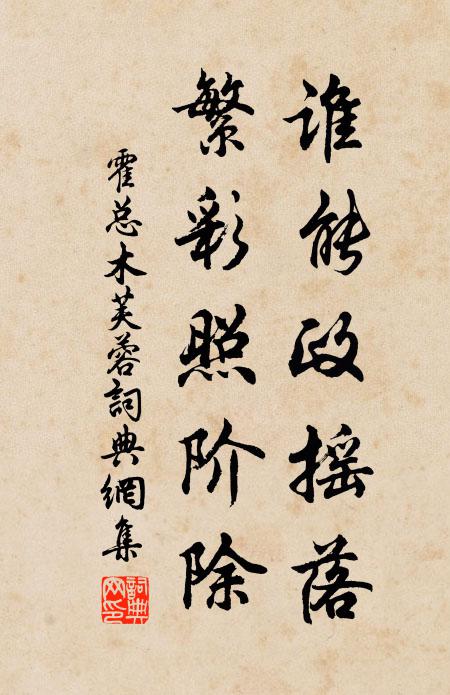 谁能政摇落
繁彩照阶除
霍总木芙蓉詞典網集
詞典网印